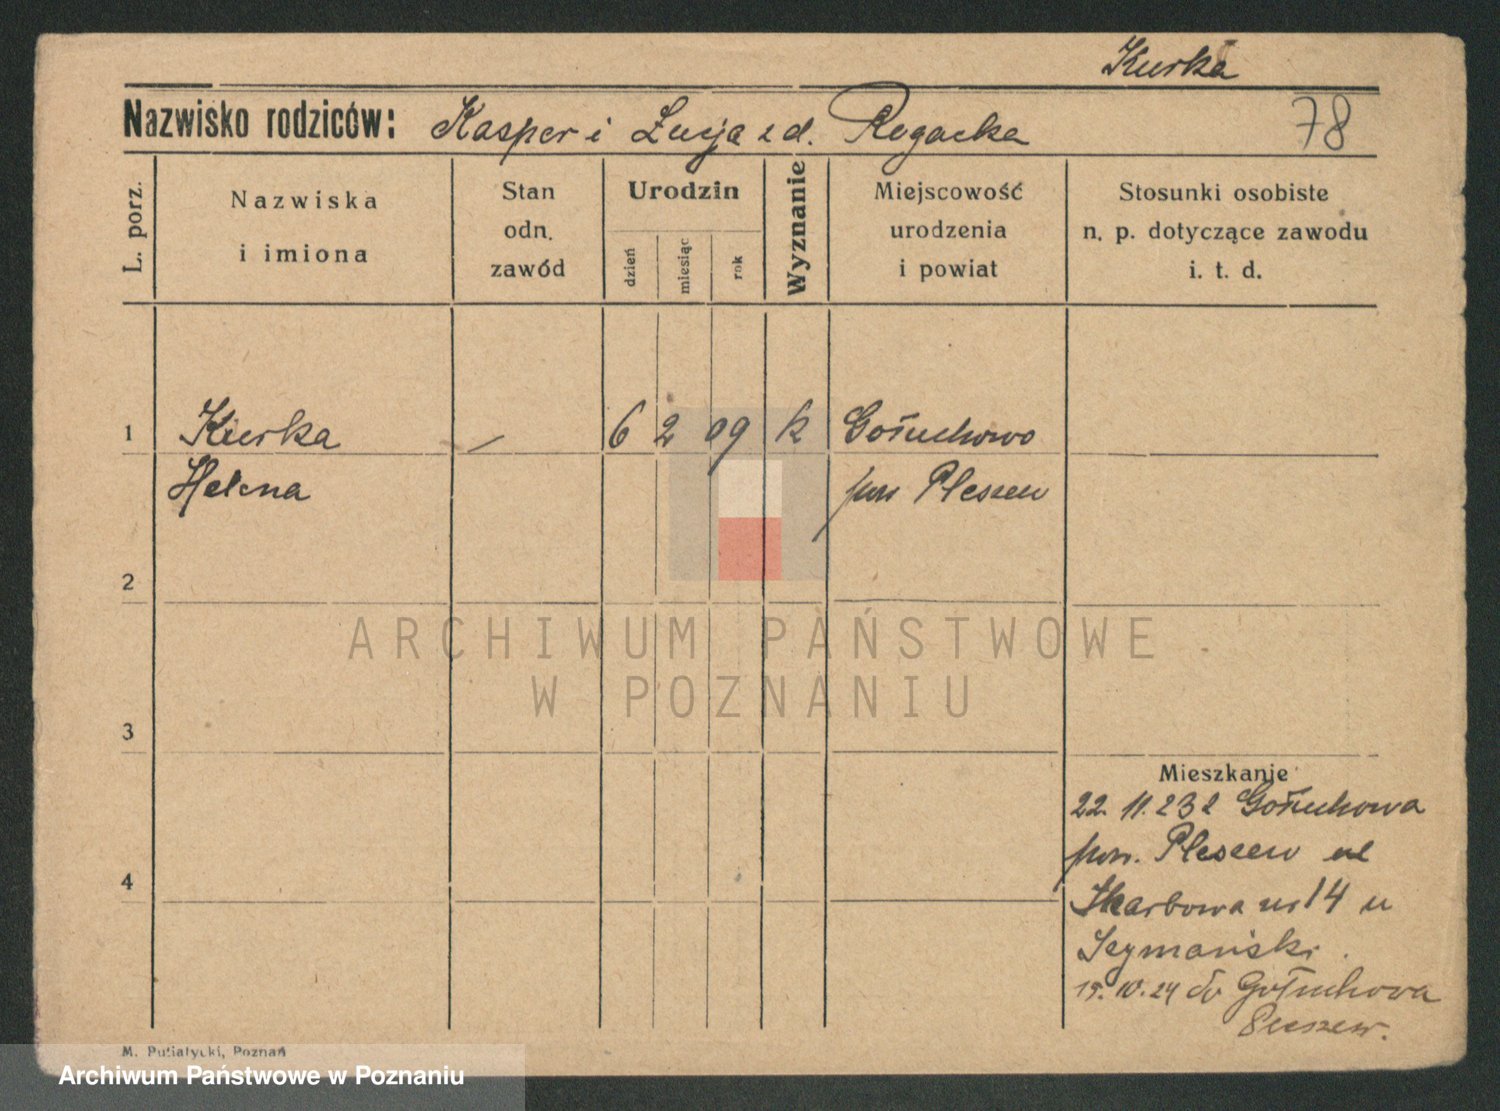 Kurka
Nazwisko rodziców: Kasper i Łucja z d. Rogacka
78
L. porz.
Nazwiska
i imiona
Stan
odn.
zawód
Urodzin
dzień
miesiąc
rok
Wyznanie
Miejscowość
urodzenia
i powiat
Stosunki osobiste
n. p. dotyczące zawodu
i. t. d.
1
Kurka
—
6
2
09
k
Gołuchowo
Helena
pow Pleszew
2
ARCHIWUM PAŃSTWOWE
W POZNANIU
3
Mieszkanie
22. 11. 23 z Gołuchowa
pow. Pleszew ul
4
Skarbowa nr 14 u
Szymański.
15. 10. 24 do Gołuchowa
Pleszew.
M. Putiatycki, Poznań
Archiwum Państwowe w Poznaniu